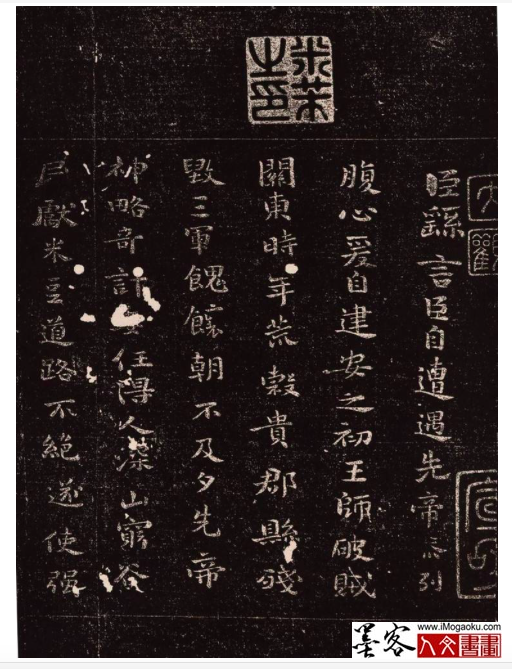 米芾之印
大觀
宣和
臣繇言臣自遭遇先帝忝列
腹心爰自建安之初王師破賊
關東時年荒穀貴郡縣殘
毀三軍餽饟朝不及夕先帝
神略奇計委任得人深山窮谷
民獻米豆道路不絕遂使強
www.iMogaoku.com
墨客
人文書畫